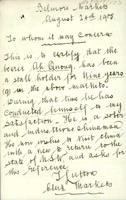 Belmore Markets
August 20th 1908
To whom it may Concern
This is to certify that the
bearer Ah Quong has been
a stall holder for Nine years
(9) in the above markets.
During that time he has
conducted himself to my
satisfaction. He is a sober
and industrious Chinaman
He now wishes to visit China
with a view to return to the
State of N.S.W. and asks for
this reference
Clerk Markets